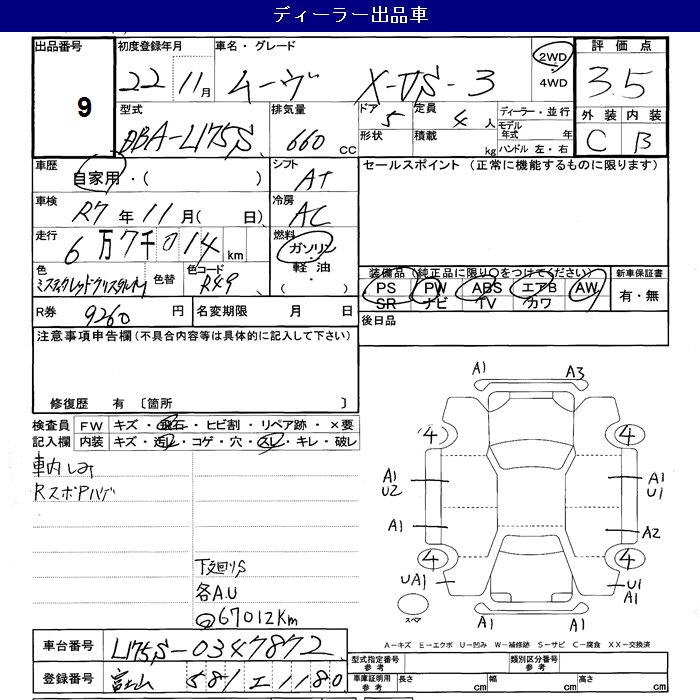 ディーラー出品車
出品番号
9
初度登録年月
22 11月
車名・グレード
ムーヴ X-VS-3
2WD
4WD
評価点
3.5
外装 内装
C B
型式
DBA-L175S
排気量
660 CC
ドア
5
形状
定員
4 人
積載 kg
ディーラー・並行
モデル年式 年
ハンドル 左・右
車歴
自家用・( )
シフト
AT
セールスポイント (正常に機能するものに限ります)
車検
R7年11月( 日)
冷房
AC
走行
6万7千014km
燃料
ガソリン
軽油
( ・ )
色
色替
色コード
R49
装備品(純正品に限り○をつけてください)
PS PW ABS エアB AW
SR ナビ TV カワ
新車保証書
有・無
R券
9260円
名変期限 月 日
後日品
注意事項申告欄(不具合内容等は具体的に記入して下さい)
修復歴 有 〔箇所 〕
検査員記入欄
FW キズ・飛石・ヒビ割・リペア跡・×要
内装 キズ・汚レ・コゲ・穴・スレ・キレ・破レ
車内しみ
RスポPハゲ
下廻りS
各A.U
67012Km
A1
A3
4
4
A1
U2
A1
U1
A1
A2
4
4
UA1
U1
A1
スペア
A1
A-キズ E-エクボ U-凹み W-補修跡 S-サビ C-腐食 XX-交換済
車台番号
L175S-0347872
登録番号
富山 581 エ 1180
型式指定番号
参考
類別区分番号
参考
車庫証明用
参考
長さ cm
幅 cm
高さ cm